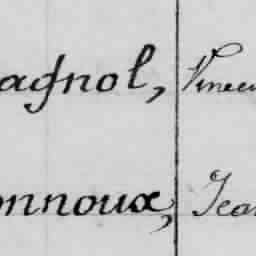 agnol, Vincen
onnoux, Jean